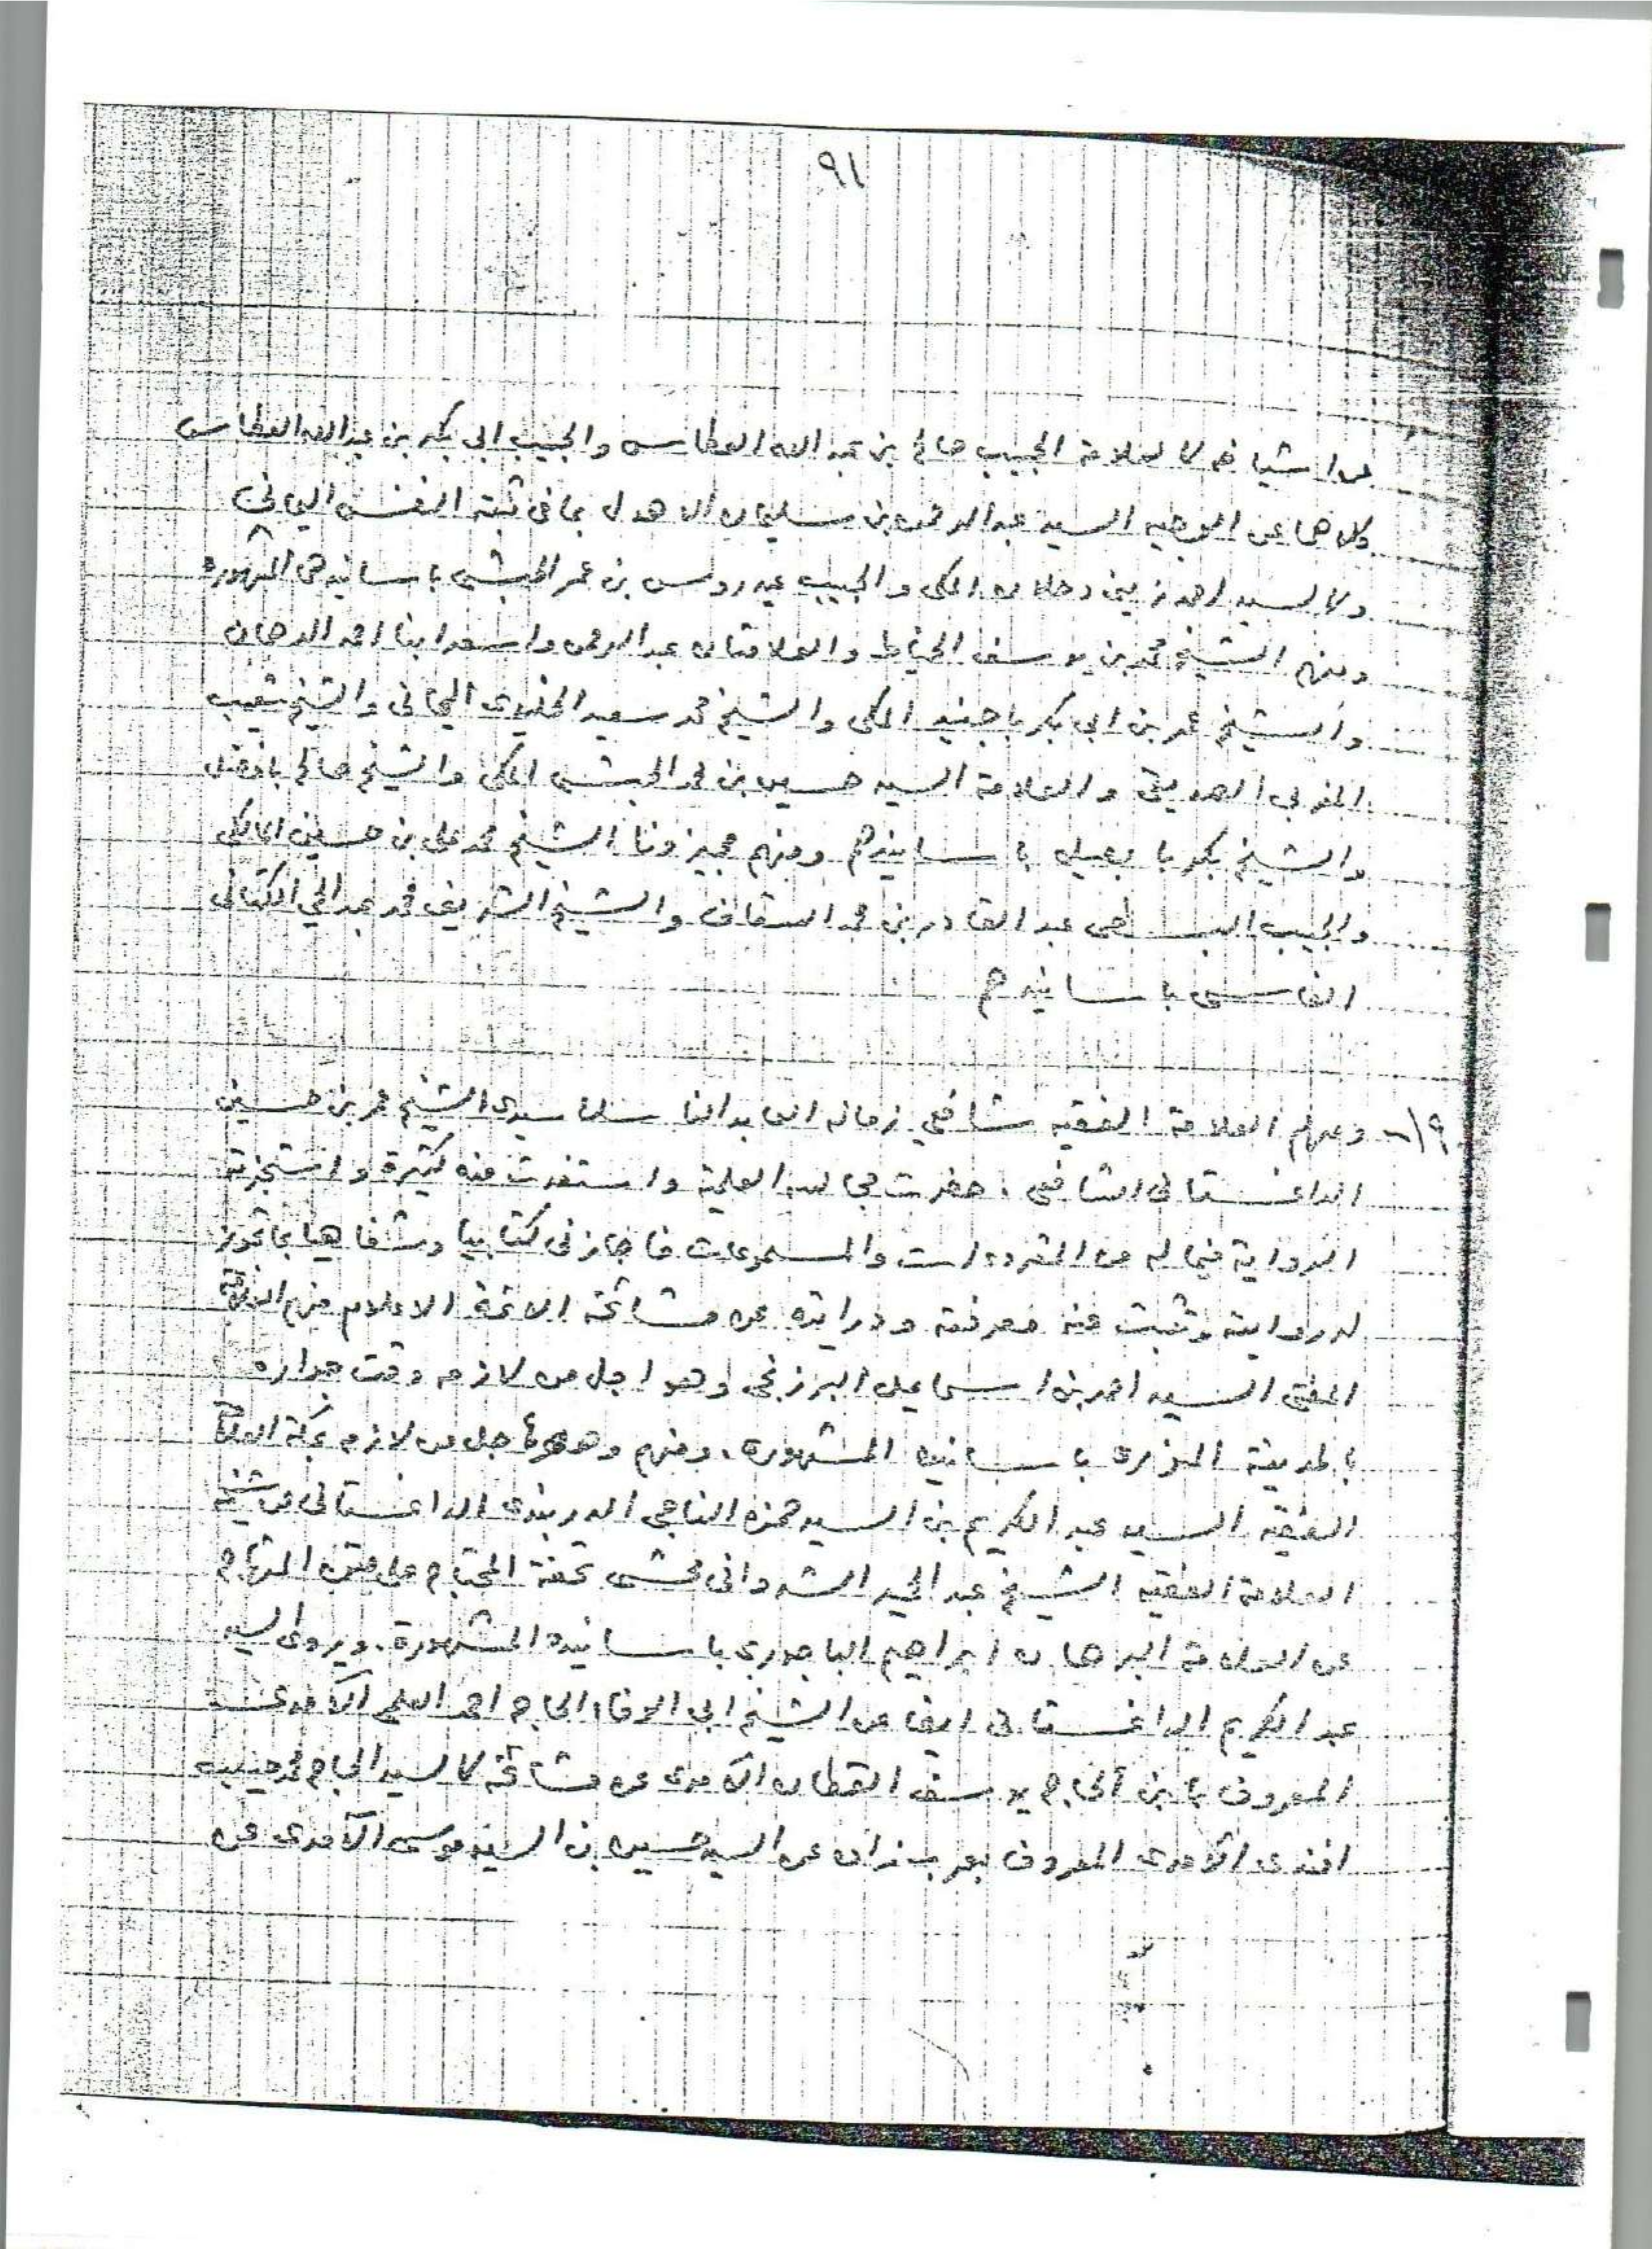 ٩١
عن اشياخه كالعلامة الحبيب صالح بن عبد الله العطاس والحبيب ابي بكر بن عبد الله العطاس
كلاهما عن الوجيه السيد عبد الرحمن بن سليمان الاهدل بما في ثبته النفس اليماني
وكالسيد احمد زيني دحلان المكي والحبيب عيدروس بن عمر الحبشي باسانيدهما المشهورة
ومنهم الشيخ محمد بن يوسف الخياط والعلامتان عبد الرحمن واسعد ابنا احمد الدهان
والشيخ عمر بن ابي بكر باجنيد المكي والشيخ محمد سعيد اليماني والشيخ شعيب
المغربي الصديقي والعلامة السيد حسين بن محمد الحبشي المكي والشيخ صالح بافضل
والشيخ بكر بابصيل باسانيدهم ومنهم مجيزونا الشيخ محمد علي بن حسين المالكي
والحبيب عبد القادر بن محمد السقاف والشيخ الشريف محمد عبد الحي الكتاني
الفاسي باسانيدهم
٩١ - ومنهم العلامة الفقيه شافعي زمانه العابد الناسك سيدي الشيخ عمر بن حسين
الداغستاني الشافعي، حضرت مجالسه العلمية واستفدت منه كثيرة واستجزته
الرواية فيما له من المقروءات والمسموعات فاجازني كتابيا وشفاهيا بما تجوز
له روايته وثبت منه معرفته ودرايته عن مشائخه الائمة الاعلام منهم العلامة
المفتي السيد احمد بن اسماعيل البرزنجي وهو اجل من لازمه وقت جواره
بالمدينة المنورة باسانيده المشهورة، ومنهم وهو اجل من لازم بمكة العلامة
الفقيه السيد عبد الكريم بن السيد حمزة الناجي الدربندي الداغستاني عن شيخه
العلامة الفقيه الشيخ عبد الحميد الشرواني محشي تحفة المحتاج على متن المنهاج
عن العلامة البرهان ابراهيم الباجوري باسانيده المشهورة، ويروي السيد
عبد الكريم الداغستاني ايضا عن الشيخ ابي الحاج احمد الآمدي
المعروف بابن الحاج يوسف القطان الآمدي عن مشائخه كالسيد الحاج محمد
افندي الآمدي المعروف عن السيد حسين بن السيد موسى الآمدي عن